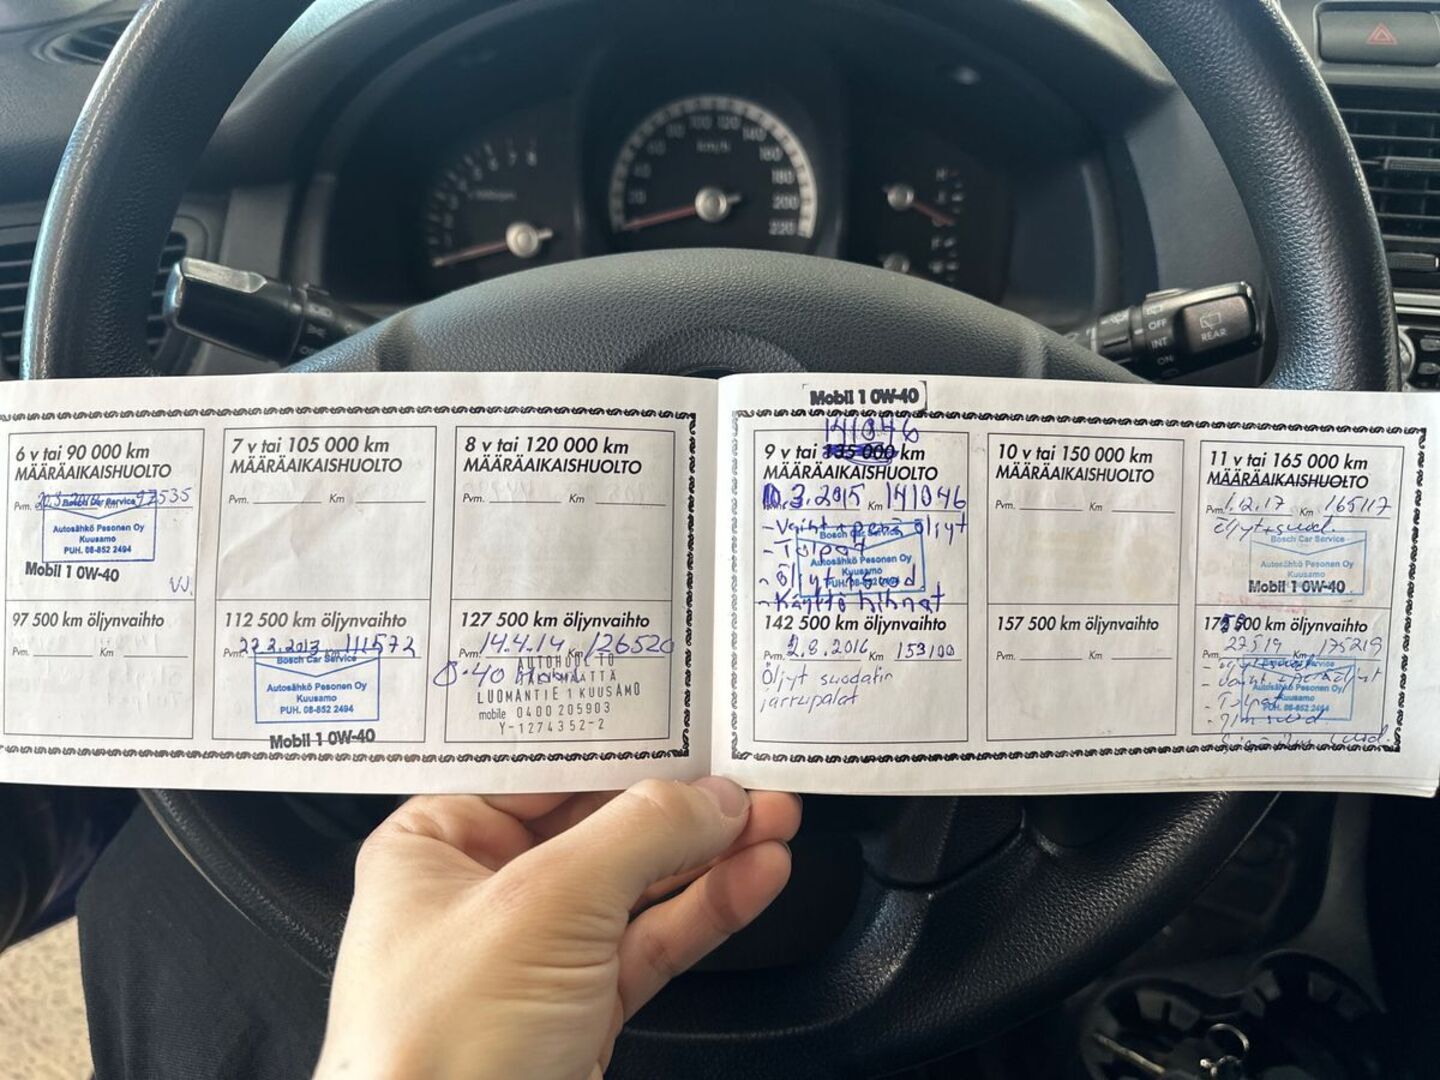 OFF
INT
REAR
km/h
6 v tai 90 000 km
MÄÄRÄAIKAISHUOLTO
Pvm. Km 97535
Bosch Car Service
Autosähkö Pesonen Oy
Kuusamo
PUH. 08-852 2494
Mobil 1 0W-40
7 v tai 105 000 km
MÄÄRÄAIKAISHUOLTO
Pvm. Km
8 v tai 120 000 km
MÄÄRÄAIKAISHUOLTO
Pvm. Km
97 500 km öljynvaihto
Pvm. Km
112 500 km öljynvaihto
Pvm. 22.2.2013 111572
Bosch Car Service
Autosähkö Pesonen Oy
Kuusamo
PUH. 08-852 2494
Mobil 1 0W-40
127 500 km öljynvaihto
Pvm. 14.4.14 Km 126520
0-40 Mobil
AUTOHUOLTO
LUOMANTIE 1 KUUSAMO
mobile 0400 205903
Y-1274352-2
Mobil 1 0W-40
141046
9 v tai 135 000 km
MÄÄRÄAIKAISHUOLTO
10.3.2015 Km 141046
- Vaiht + perä öljyt
- Tulpat
- Öljyt + suod
- Käyttö hihnat
Bosch Car Service
Autosähkö Pesonen Oy
Kuusamo
10 v tai 150 000 km
MÄÄRÄAIKAISHUOLTO
Pvm. Km
11 v tai 165 000 km
MÄÄRÄAIKAISHUOLTO
Pvm. 1.12.17 Km 165117
Öljyt+suod.
Bosch Car Service
Autosähkö Pesonen Oy
Kuusamo
Mobil 1 0W-40
142 500 km öljynvaihto
Pvm. 2.8.2016 Km 153100
Öljyt suodatin
jarrupalat
157 500 km öljynvaihto
Pvm. Km
500 km öljynvaihto
Pvm. 27519 Km 175219
- Vaiht + peräöljyt
- Tulpat
Autosähkö Pesonen Oy
Kuusamo